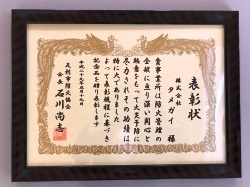 表彰状
株式会社
タメガイ 様
貴事業所は防火管理の
全般に亘り深い関心と
熱意をもって火災予防に
尽力されその功績は
特に大であります
よって表彰規程に基づき
記念品を贈り表彰します
平成二十九年五月十九日
足利市防火協会
会長 石川尚志